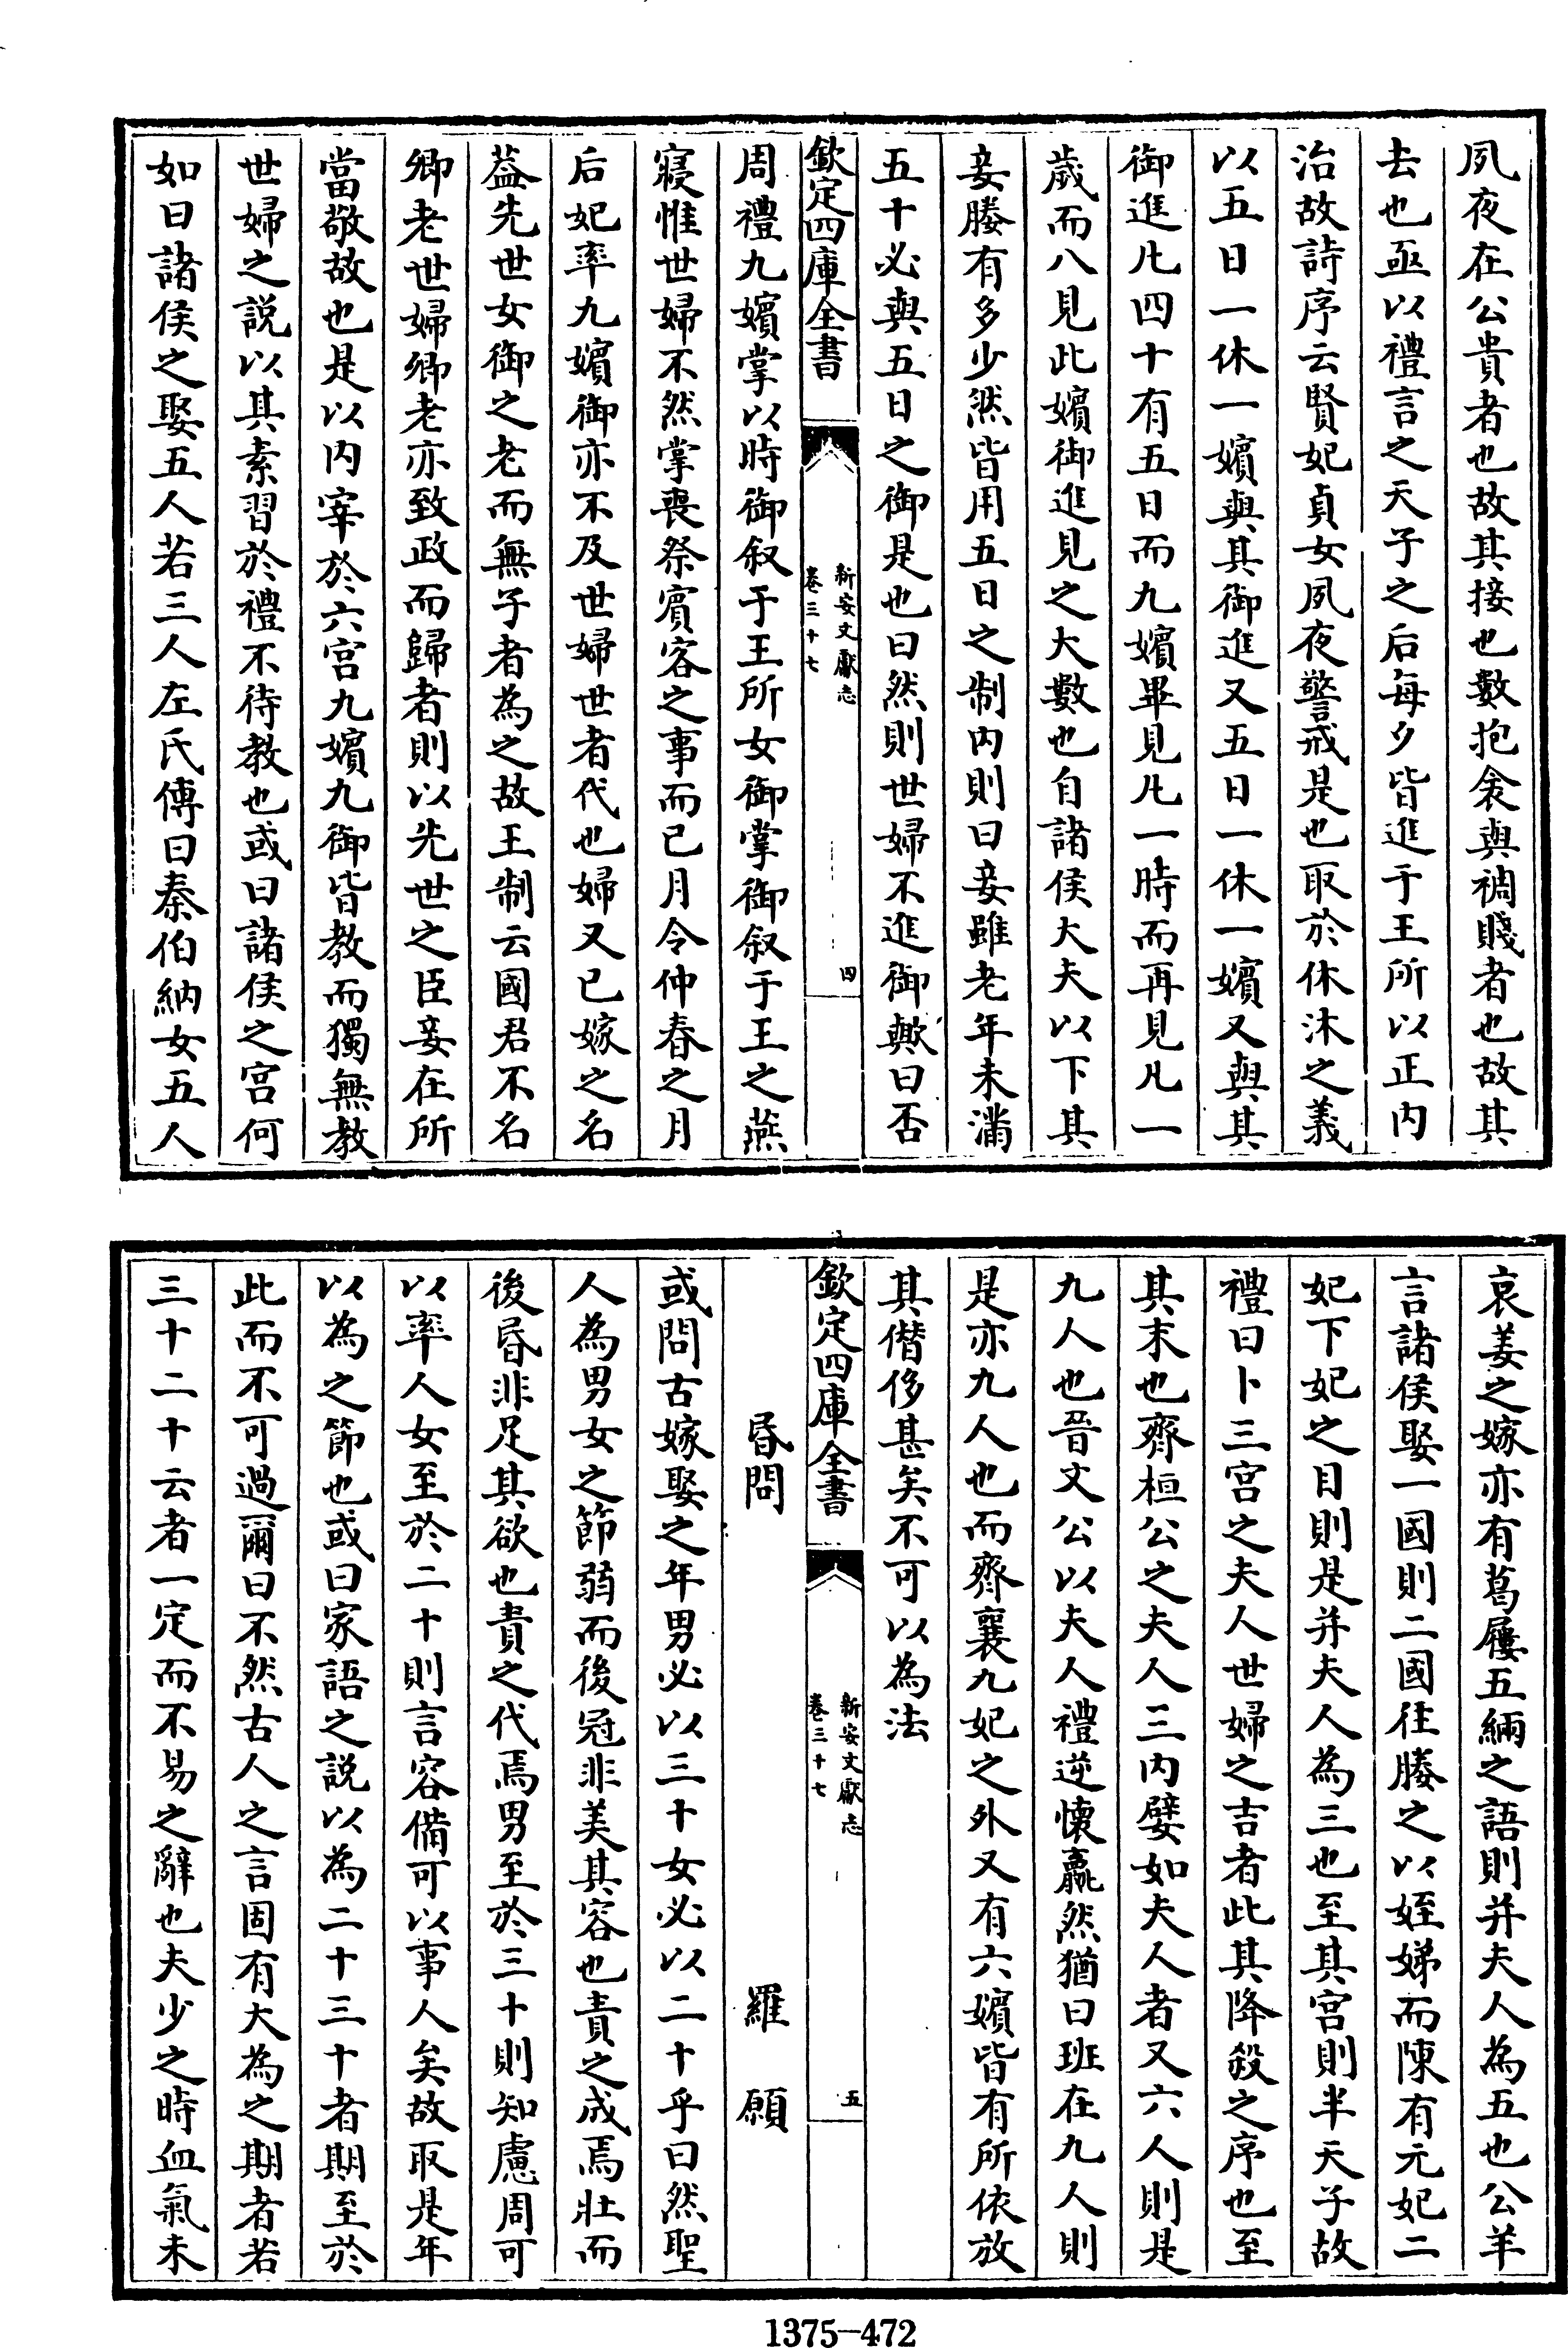 夙夜在公貴者也故其接也數抱衾與裯賤者也故其
去也亟以禮言之天子之后每夕皆進于王所以正内
治故詩序云賢妃貞女夙夜警戒是也取於休沐之義
以五日一休一嬪與其御進又五日一休一嬪又與其
御進凡四十有五日而九嬪畢見凡一時而再見凡一
歲而八見此嬪御進見之大數也自諸侯大夫以下其
妾媵有多少然皆用五日之制内則曰妾雖老年未滿
五十必與五日之御是也曰然則世婦不進御歟曰否
欽定四庫全書
新安文獻志
卷三十七
四
周禮九嬪掌以時御叙于王所女御掌御叙于王之燕
寢惟世婦不然掌喪祭賓客之事而已月令仲春之月
后妃率九嬪御亦不及世婦世者代也婦又已嫁之名
葢先世女御之老而無子者為之故王制云國君不名
卿老世婦卿老亦致政而歸者則以先世之臣妾在所
當敬故也是以内宰於六宫九嬪九御皆教而獨無教
世婦之説以其素習於禮不待教也或曰諸侯之宫何
如曰諸侯之娶五人若三人左氏傳曰秦伯納女五人
哀姜之嫁亦有葛屨五緉之語則并夫人為五也公羊
言諸侯娶一國則二國往媵之以姪娣而陳有元妃二
妃下妃之目則是并夫人為三也至其宫則半天子故
禮曰卜三宫之夫人世婦之吉者此其降殺之序也至
其末也齊桓公之夫人三内嬖如夫人者又六人則是
九人也晉文公以夫人禮逆懷嬴然猶曰班在九人則
是亦九人也而齊襄九妃之外又有六嬪皆有所依放
其僭侈甚矣不可以為法
欽定四庫全書
新安文獻志
卷三十七
五
昏問 羅願
或問古嫁娶之年男必以三十女必以二十乎曰然聖
人為男女之節弱而後冠非美其容也責之成焉壯而
後昏非足其欲也責之代焉男至於三十則知慮周可
以率人女至於二十則言容備可以事人矣故取是年
以為之節也或曰家語之説以為二十三十者期至於
此而不可過爾曰不然古人之言固有大為之期者若
三十二十云者一定而不易之辭也夫少之時血氣未
1375-472